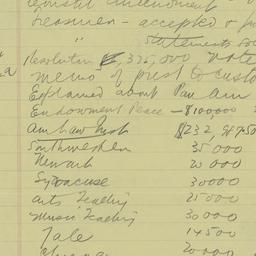 Treasurer - accepted &
" Statements
Resolution $5,325,000 vote
memo of prest to custo
Explained about Pan Am
Endowment Peace - $100000
Am Law Inst $232,
Southwestern 35000
Newark 20000
Syracuse 30000
Arts Teaching 25000
Music Teaching 30000
Yale 14500
Chicago 20000